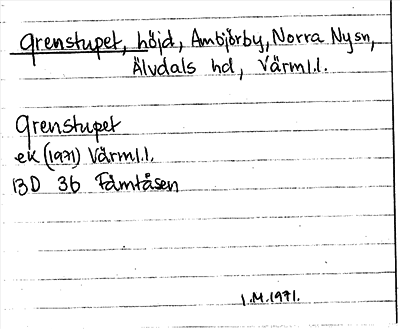 Grenstupet, höjd, Ambjörby, Norra Nysn,
Älvdals hd, Värml.l.
Grenstupet
ek (1971) Värml.l.
13D 3b Fämtåsen
I.M.1971.